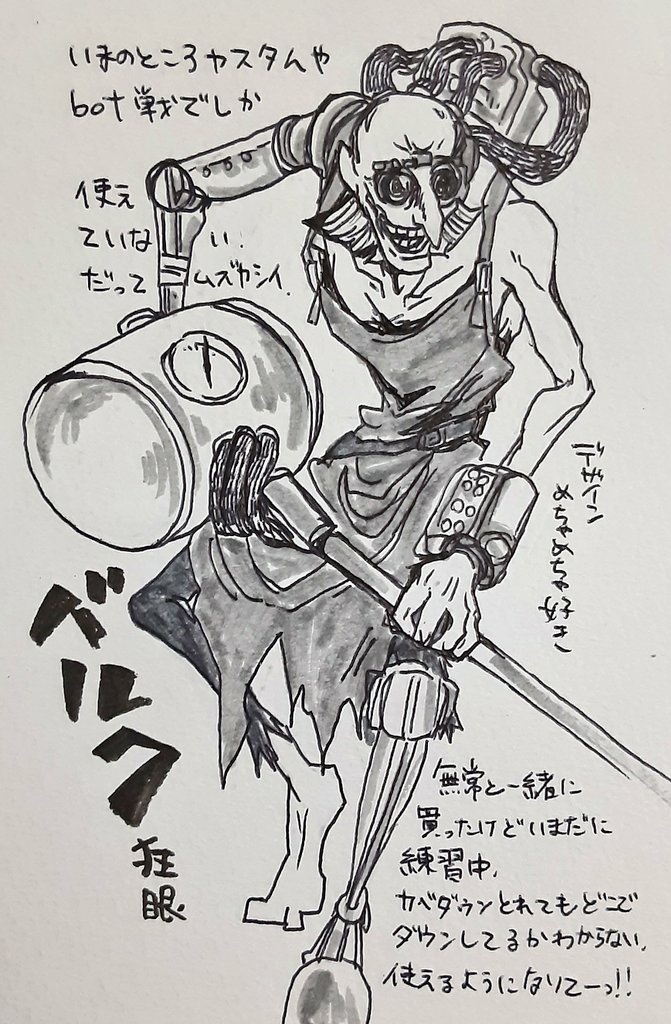 いまのところカスタムや
bot戦でしか
使え
ていない.
だってムズカシイ.
デザイン
めちゃめちゃ好き
ベルク
狂眼
無常と一緒に
買ったけどいまだに
練習中.
カベダウンとれてもどこで
ダウンしてるかわからない.
使えるようになりてーっ!!